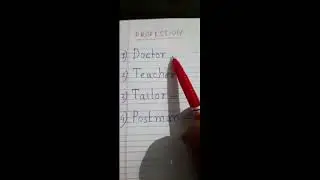 PROFESSION
1) Doctor
2) Teacher
3) Tailor
4) Postman